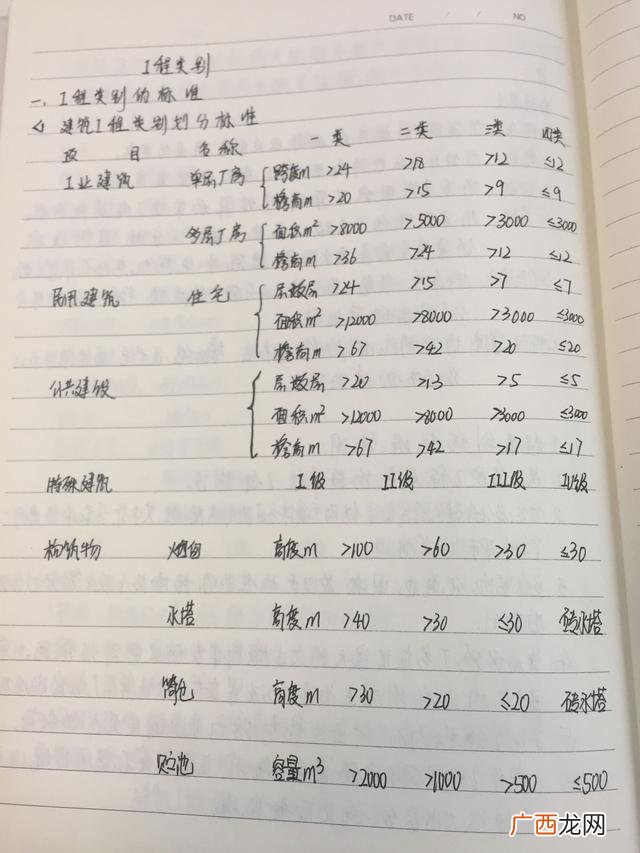 DATE / / NO
工程类别
一、工程类别的标准
<1> 建筑工程类别划分标准
项 目 名称 一类 二类 三类 四类
工业建筑 单层厂房 跨高m >24 >18 >12 ≤12
檐高m >20 >15 >9 ≤9
多层厂房 面积m² >8000 >5000 >3000 ≤3000
檐高m >36 >24 >12 ≤12
民用建筑 住宅 层数层 >24 >15 >7 ≤7
面积m² >12000 >8000 >3000 ≤3000
檐高m >67 >42 >20 ≤20
公共建设 层数层 >20 >13 >5 ≤5
面积m² >12000 >8000 >3000 ≤3000
檐高m >67 >42 >17 ≤17
特殊建筑 I级 II级 III级 IV级
构筑物 烟囱 高度m >100 >60 >30 ≤30
水塔 高度m >40 >30 ≤30 砖水塔
筒仓 高度m >30 >20 ≤20 砖水塔
贮池 容量m³ >2000 >1000 >500 ≤500
广西龙网